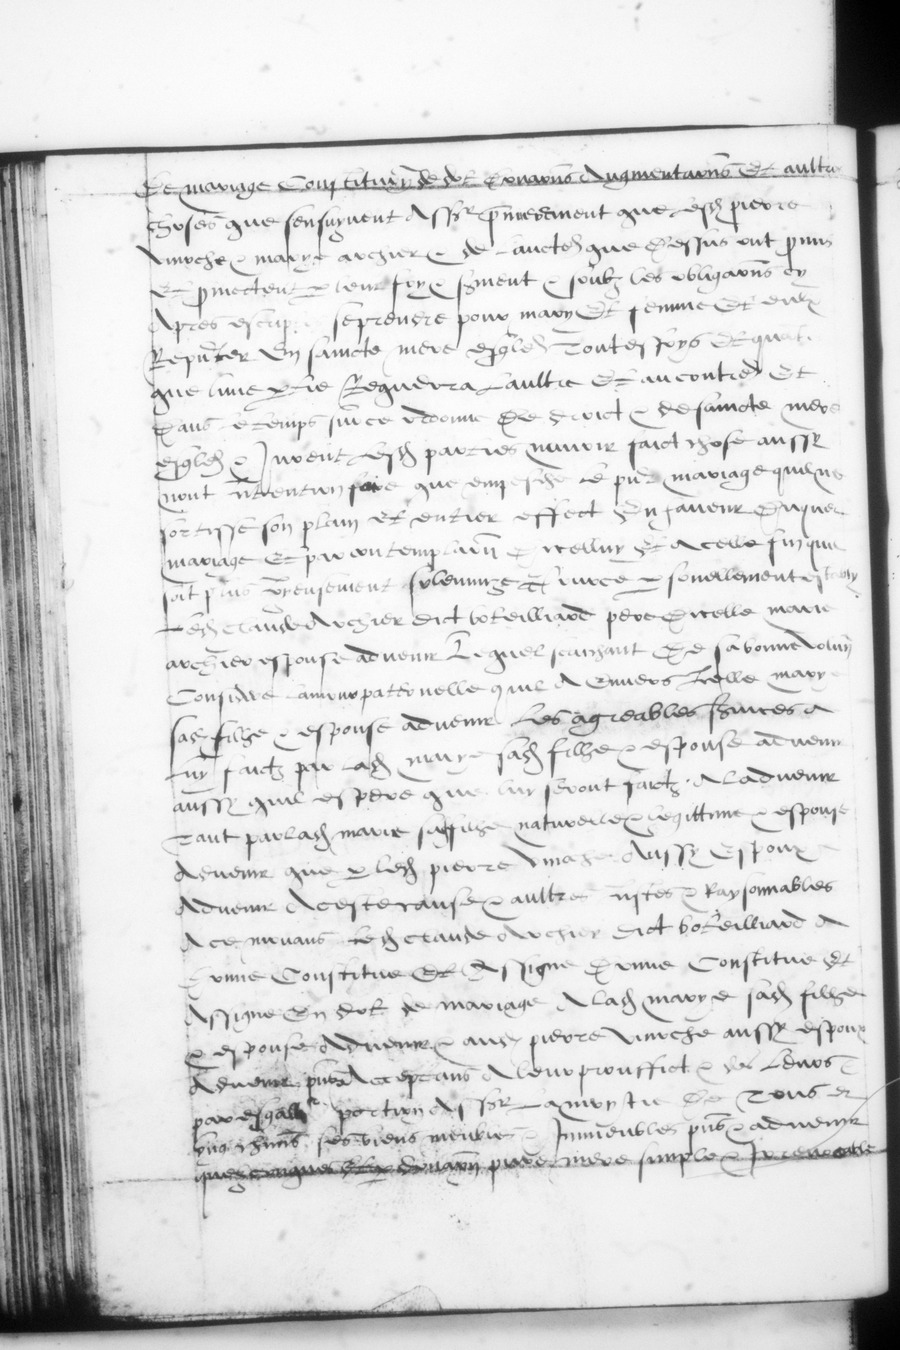 De mariage Constitution de dot Donaons Augmentaons Et aultres
choses que sensuyvent Assr premierement que lesd pierre
Amoche & marye archier & de lauctor que dessus ont promis
Et promectent par leur foy & serment & soubz les obligaons cy
Apres escriptes se prendre pour mary Et femme Et eulx
Reputer En saincte mere esglise Toutesfoys Et quantes
que lune ptie Requerra laultre Et au contrere Et
Dans le temps sur ce ordonne De droict & de saincte mere
esglise & Jurent lesd parties navoir faict chose aussy
nont Intention fere que empesche le pnt mariage quil ne
sortisse son plain Et entier effect En faveur duquel
mariage Et par contemplaon Dicelluy Et A celle fin que
soit plus
Led Claude Archier dict boteilliard pere Dicelle marie
archier espouse advenir Lequel saichant De sa bonne
Considere lamour paternelle quil A Envers Icelle marye
sad fillie & espouse advenir Les agreables services A
luy faictz par lad marye sad fillie & espouse advenir
aussy quil espere que luy seront faictz A ladvenir
Tant par lad marie sad fillie naturelle & legittime & espouse
Advenir que par led pierre Amoche Aussy Espoux
Advenir A ceste cause & aultres Justes & Raysonnables
A ce mouvans Led Claude Archier dict boteilliard A
Donne Constitue Et Assigne Donne Constitue Et
Assigne En dot de mariage A lad marye sad fillie
& espouse Advenir & aud pierre Amoche aussy espoux
Advenir pns Acceptans A leur prouffict & des leurs
par esgalle portion Assr La moytie De Tous Et
ses biens meubles & Immeubles pns & advenir
quelconques Donaon pure mere simple & Irrevocable